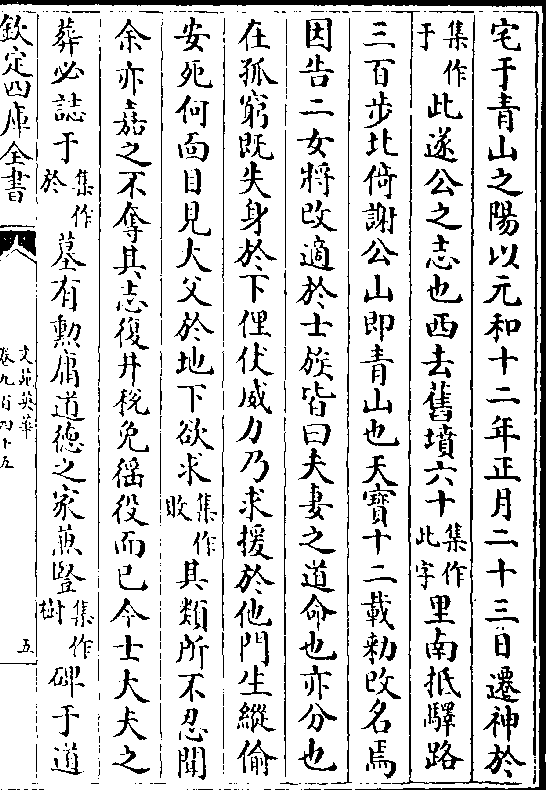 宅于青山之陽以元和十二年正月二十三日遷神於
集作于此遂公之志也西去舊墳六十集作此字里南抵驛路
三百步北倚謝公山即青山也天寶十二載勅改名焉
因告二女將改適於士族皆曰夫妻之道命也亦分也
在孤窮既失身於下俚伏威力乃求援於他門生縱偷
安死何面目見大父於地下欲求集作敗其類所不忍聞
余亦嘉之不奪其志復井稅免徭役而已今士大夫之
葬必誌于集作於墓有勲庸道德之家兼豎集作樹碑于道
欽定四庫全書
文苑英華
卷九百四十五
五